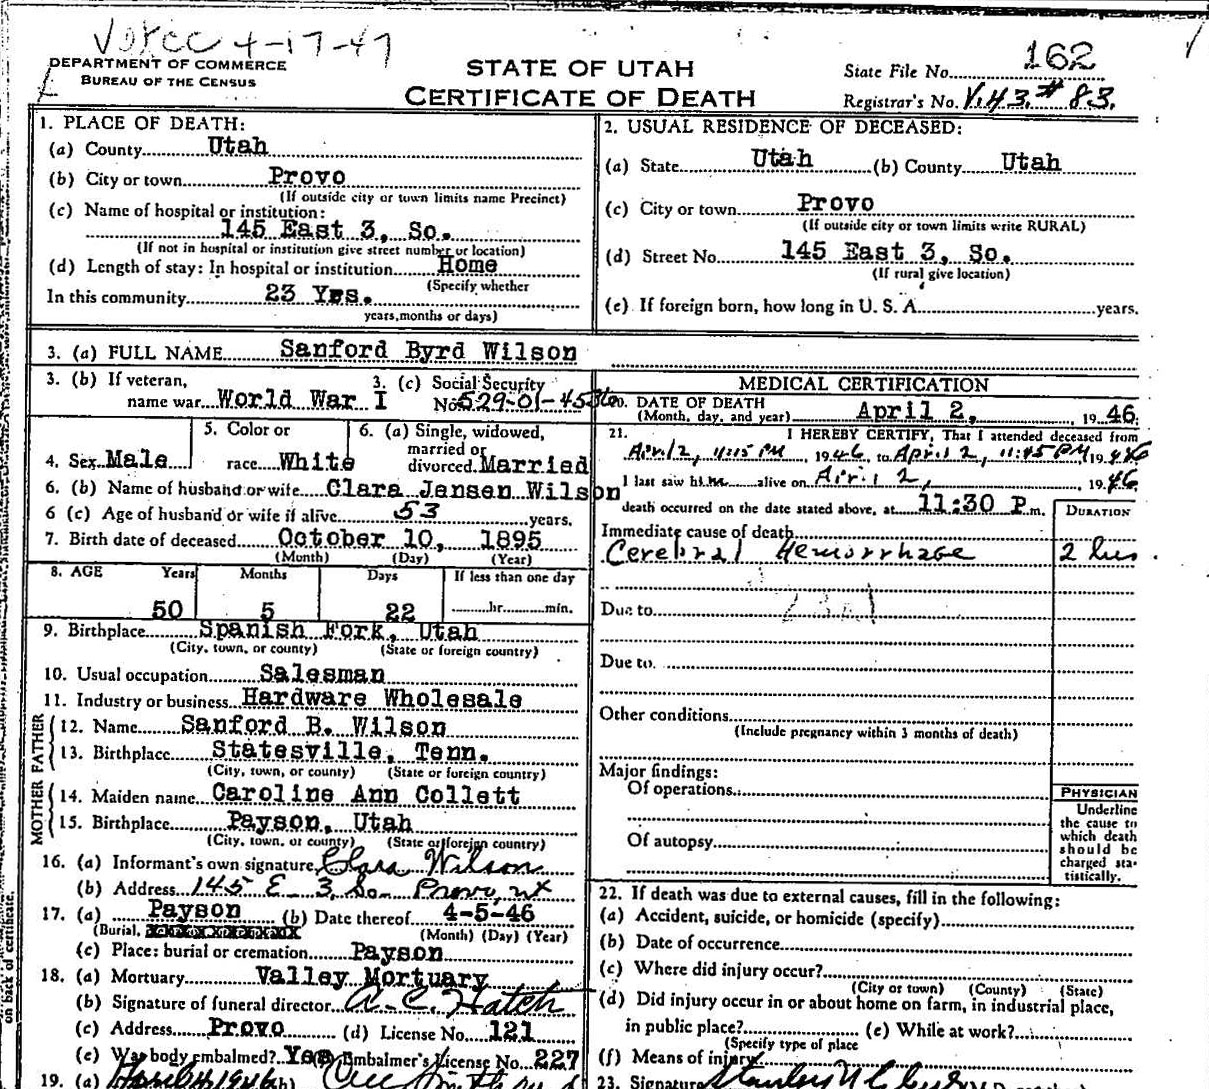 4-17-47
DEPARTMENT OF COMMERCE
BUREAU OF THE CENSUS
STATE OF UTAH
CERTIFICATE OF DEATH
State File No. 162
Registrar's No. V.43.#83.
1. PLACE OF DEATH:
(a) County Utah
(b) City or town Provo
(If outside city or town limits name Precinct)
(c) Name of hospital or institution:
145 East 3, So.
(If not in hospital or institution give street number or location)
(d) Length of stay: In hospital or institution Home
(Specify whether
In this community 23 Yrs.
years, months or days)
2. USUAL RESIDENCE OF DECEASED:
(a) State Utah (b) County Utah
(c) City or town Provo
(If outside city or town limits write RURAL)
(d) Street No. 145 East 3, So.
(If rural give location)
(e) If foreign born, how long in U. S. A. years.
3. (a) FULL NAME Sanford Byrd Wilson
3. (b) If veteran, name war World War I
3. (c) Social Security No. 529-01-4536
4. Sex Male
5. Color or race White
6. (a) Single, widowed, married or divorced Married
6. (b) Name of husband or wife Clara Jensen Wilson
6 (c) Age of husband or wife if alive 53 years.
7. Birth date of deceased October 10, 1895
(Month) (Day) (Year)
8. AGE Years Months Days If less than one day
50 5 22 hr. min.
9. Birthplace Spanish Fork, Utah
(City, town, or county) (State or foreign country)
10. Usual occupation Salesman
11. Industry or business Hardware Wholesale
FATHER
12. Name Sanford B. Wilson
13. Birthplace Statesville, Tenn.
(City, town, or county) (State or foreign country)
MOTHER
14. Maiden name Caroline Ann Collett
15. Birthplace Payson, Utah
(City, town, or county) (State or foreign country)
16. (a) Informant's own signature Clara Wilson
(b) Address 145 E 3, So. Provo, Ut
17. (a) Payson (b) Date thereof 4-5-46
(Burial, (Month) (Day) (Year)
(c) Place: burial or cremation Payson
18. (a) Mortuary Valley Mortuary
(b) Signature of funeral director A. C. Hatch
(c) Address Provo (d) License No. 121
(e) Was body embalmed? Yes Embalmer's License No. 227
19. (a) April 4 1946
MEDICAL CERTIFICATION
20. DATE OF DEATH
(Month, day, and year) April 2, 1946.
21. I HEREBY CERTIFY, That I attended deceased from
April 2, 11:15 PM, 1946, to April 2, 11:45 PM, 1946
I last saw him alive on April 2, 1946.
death occurred on the date stated above, at 11:30 P m.
DURATION
Immediate cause of death
Cerebral Hemorrhage 2 hrs.
Due to
Due to
Other conditions
(Include pregnancy within 3 months of death)
Major findings:
Of operations
Of autopsy
PHYSICIAN
Underline
the cause to
which death
should be
charged sta-
tistically.
22. If death was due to external causes, fill in the following:
(a) Accident, suicide, or homicide (specify)
(b) Date of occurrence
(c) Where did injury occur?
(City or town) (County) (State)
(d) Did injury occur in or about home on farm, in industrial place,
in public place? (e) While at work?
(Specify type of place
(f) Means of injury
23. Signature
on back of certificate.